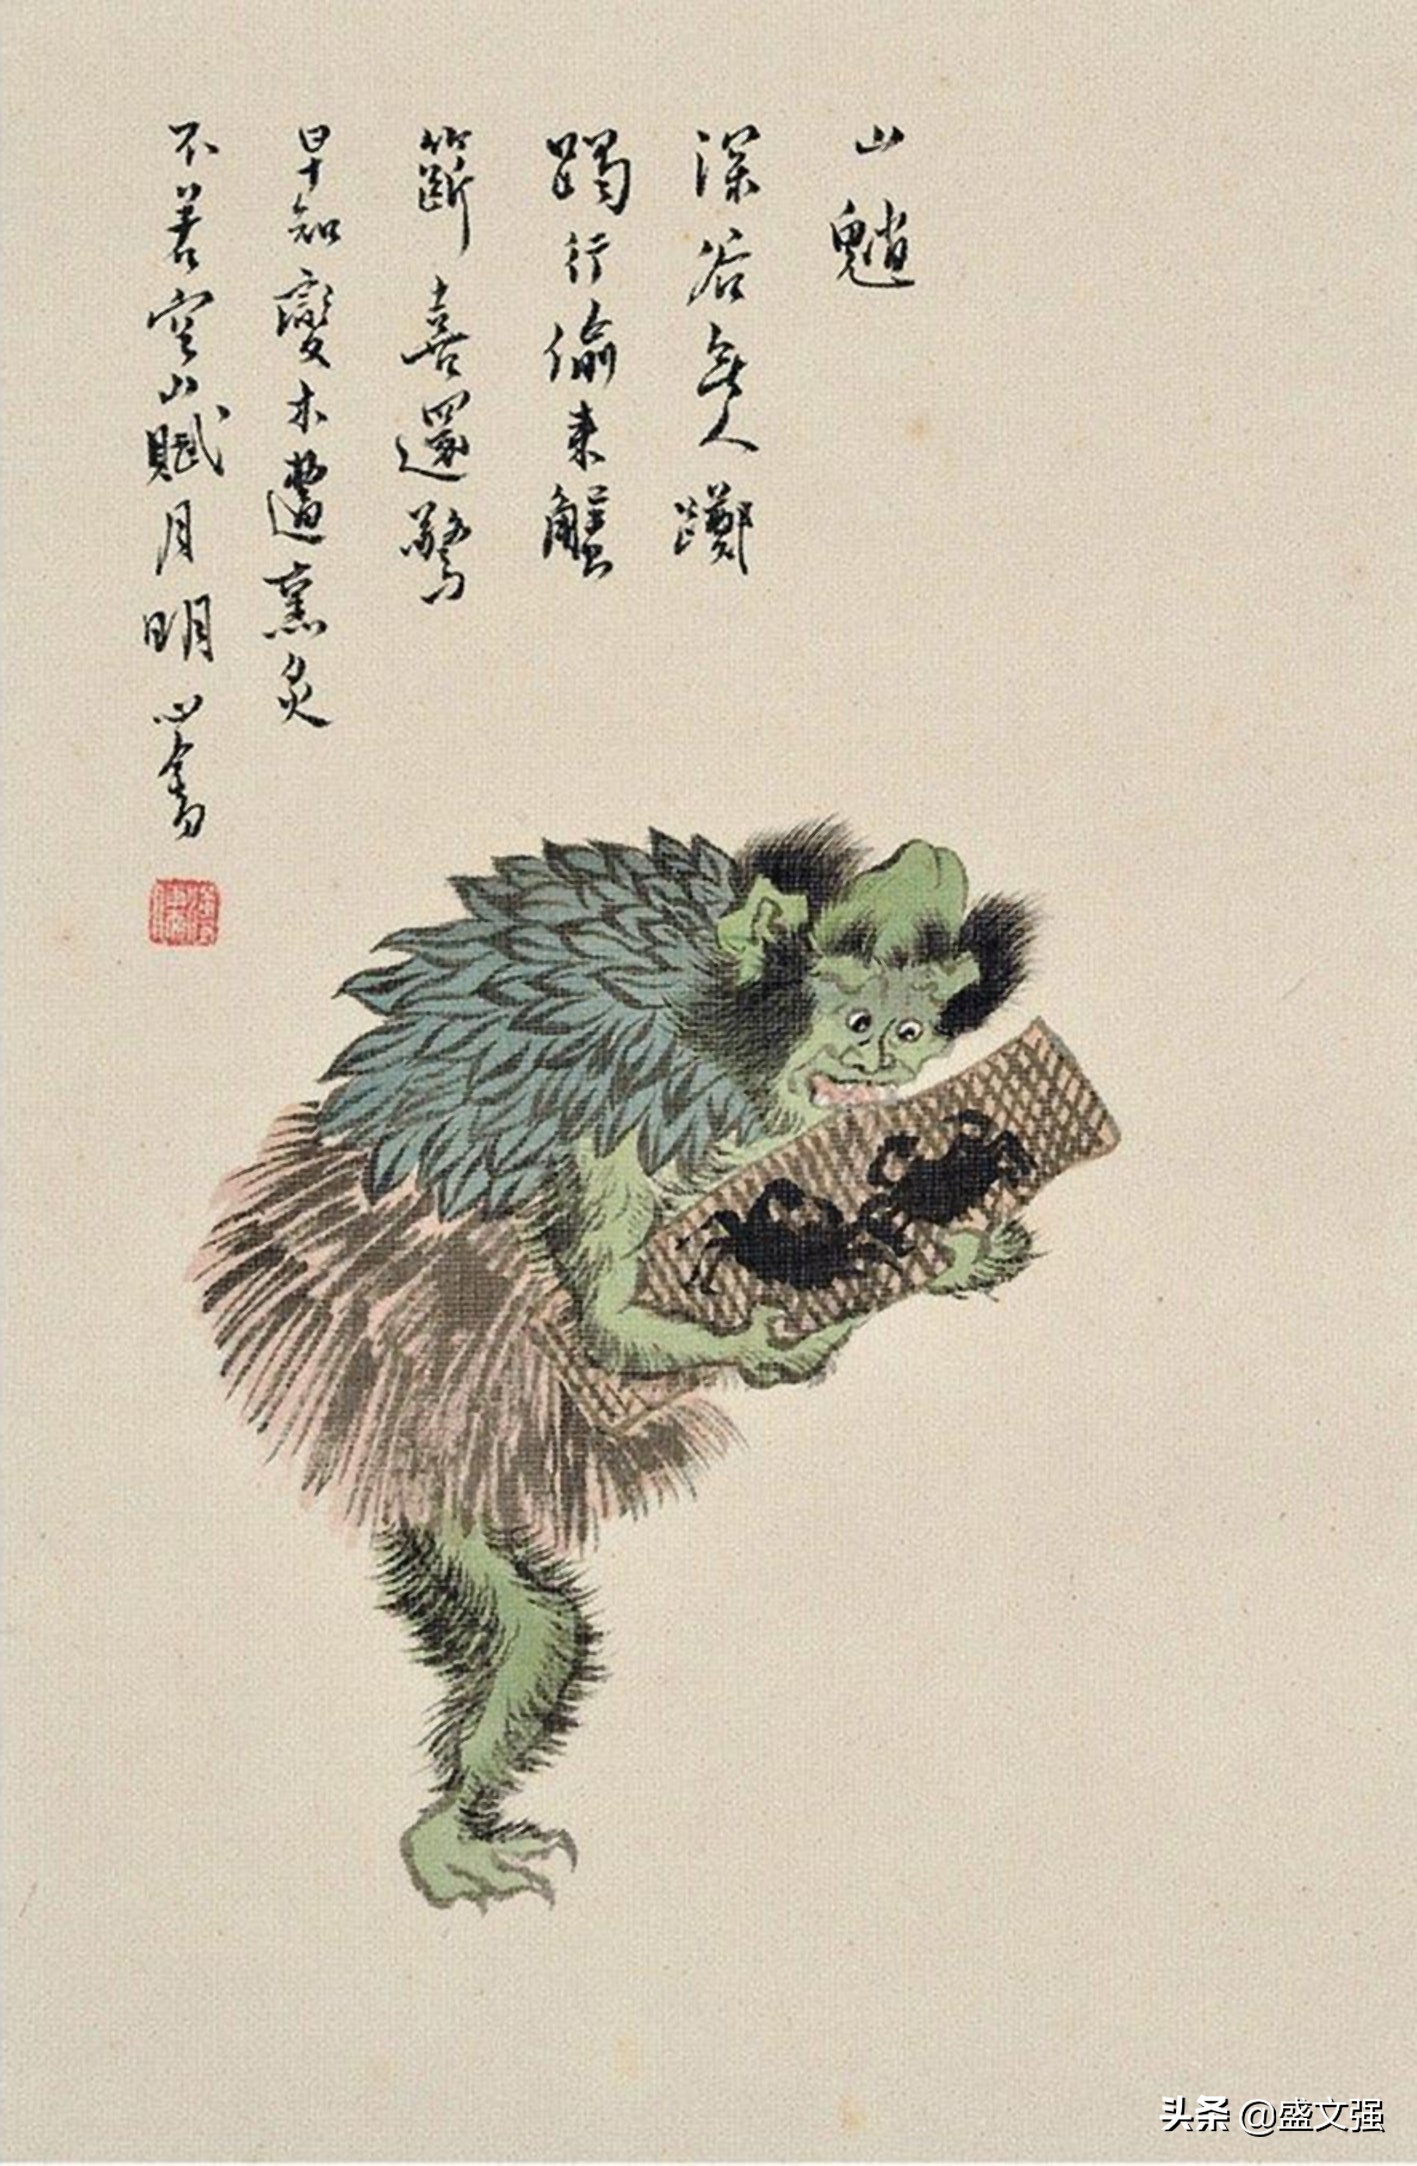 山魈
深谷無人躑
躅行偷來蟹
籪喜還驚
早知變木遭熏炙
不若空山賦月明 心畬
头条 @盛文强